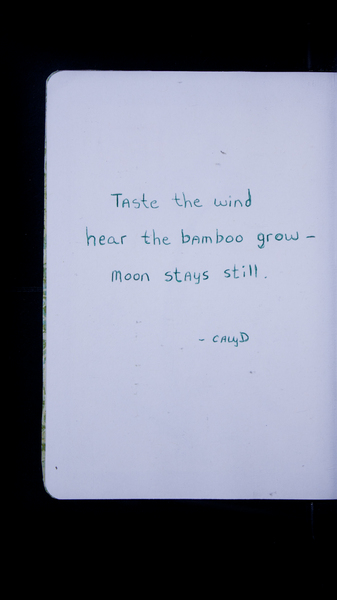 Taste the wind
hear the bamboo grow –
moon stays still.
- CAlyD